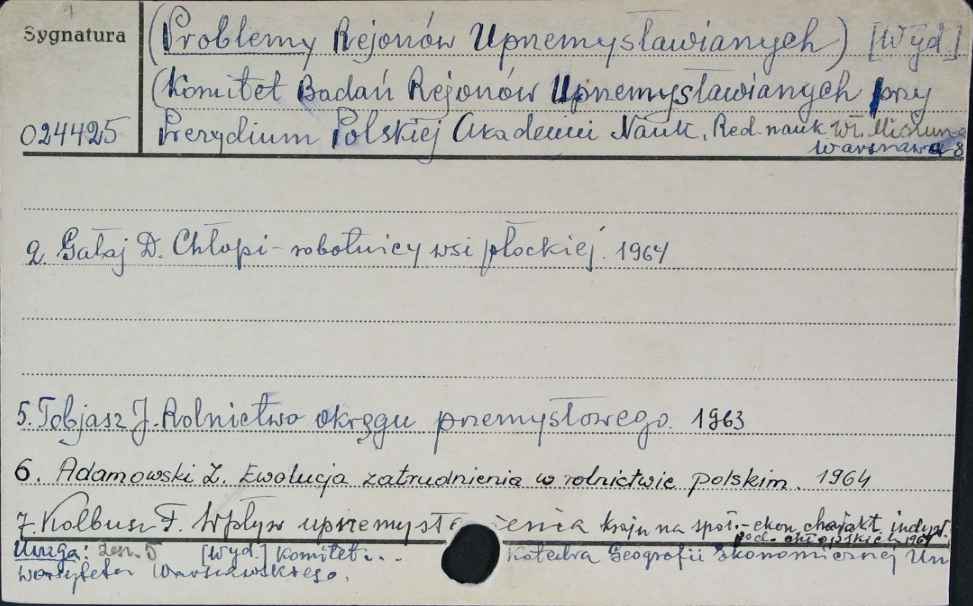 Sygnatura
(Problemy Rejonów Uprzemysławianych) [Wyd.]
(Komitet Badań Rejonów Uprzemysławianych przy
024425 Prezydium Polskiej Akademii Nauk. Red. nauk. Wł. Misiuna
Warszawa 8
2. Gałaj D. Chłopi-robotnicy wsi płockiej. 1964
5. Tobjasz J. Rolnictwo okręgu przemysłowego. 1963
6. Adamowski Z. Ewolucja zatrudnienia w rolnictwie polskim. 1964
7. Kolbusz F. Wpływ uprzemysło enia kraju na społ.-ekon. charakt. indyw.
gosd. chłopskich 1964
Uwaga: zesz. 5 [Wyd.] Komitet... Katedra Geografii Ekonomicznej Uni
wersytetu Warszawskiego.